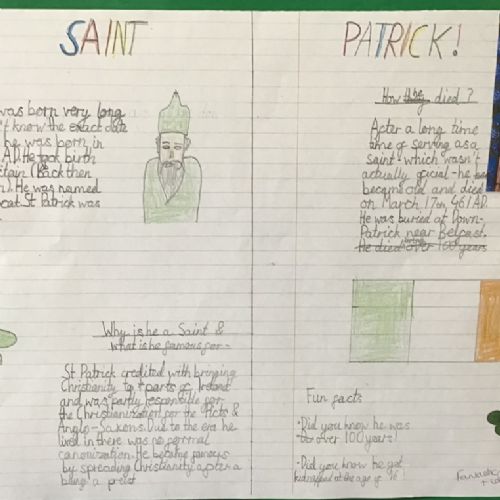 SAINT PATRICK!
was born very long
't know the exact date
he was born in
A.D. He took birth
tain (Back then
n). He was named
eat St Patrick was
Why is he a Saint &
what is he famous for -
St Patrick credited with bringing
Christianity to parts of Ireland
and was partly responsible for
the Christianization for the Picts &
Anglo-Saxons. Due to the era he
lived in there was no formal
canonization. He became famous
by spreading Christianity after a
being a preist
How he died?
After a long time
ame of serving as a
saint - which wasn't
actually oficial - he
became old and died
on March 17th, 461 AD.
He was buried at Down-
Patrick near Belfast.
He died over 100 years
Fun facts
- Did you know he was
over 100 years!
- Did you know he got
kidnapped at the age of 16
Fantastic